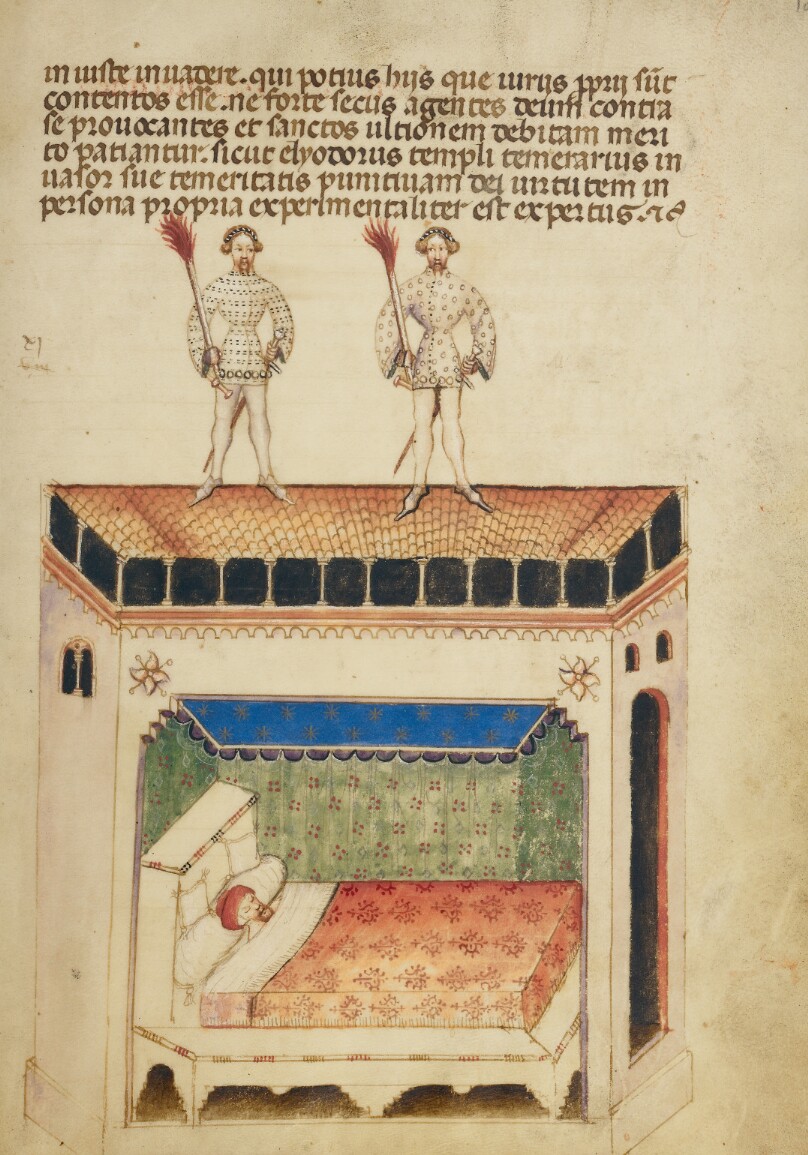 in iuste inuadere. qui potius hijs que iuris pprij sūt
contentos esse. ne forte secus agentes deum contra
se prouocantes et sanctos ultionem debitam meri
to patiantur. sicut elyodorus templi temerarius in
uasor sue temeritatis punitiuam dei uirtutem in
persona propria experimentaliter est expertus. &c